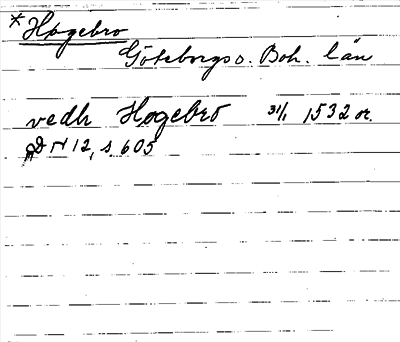 * Hogebro
Göteborgs o. Boh. län
vedh Hogebro 31/1 1532 or.
DN 12, s 605